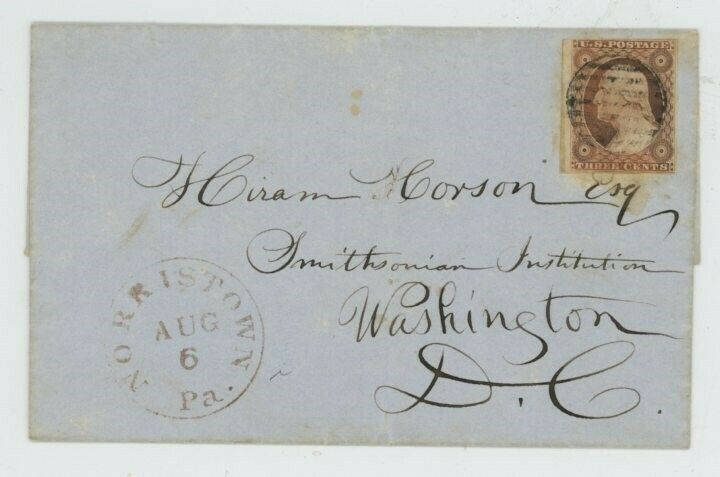 U.S. POSTAGE
THREE CENTS
Hiram Corson Esq
Smithsonian Institution
Washington
D.C.
NORRISTOWN
AUG
6
Pa.